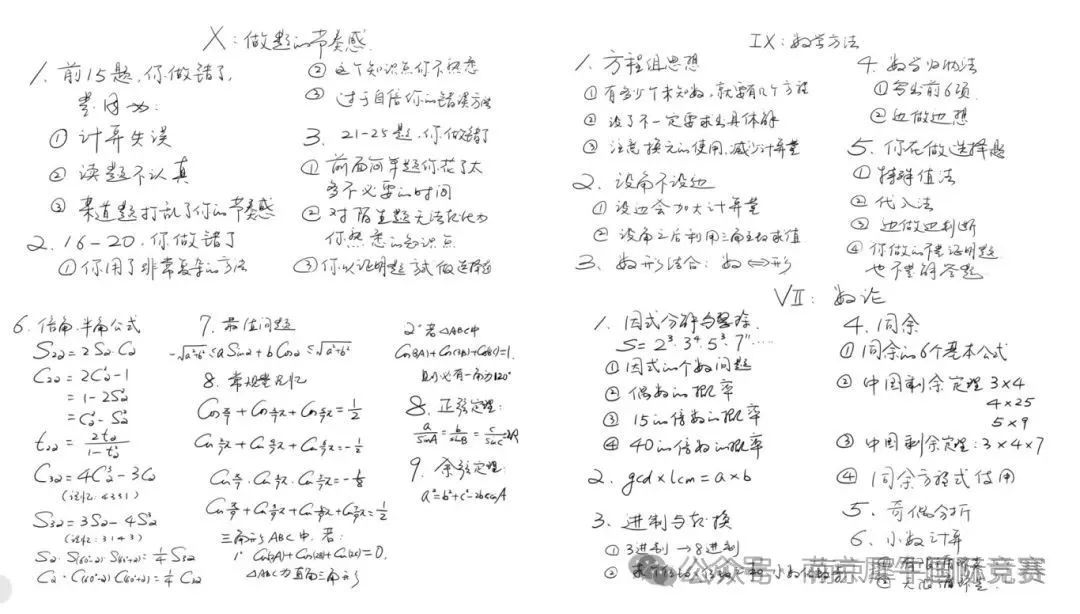 X：做题的节奏感
1. 前15题，你做错了，
其因为：
① 计算失误
② 读题不认真
③ 某道题打乱了你的节奏感
2. 16-20，你做错了
① 你用了非常复杂的方法
② 这个知识点你不熟悉
③ 过于自信你的错误方法
3. 21-25题，你做错了
① 前面简单题你花了太
多不必要的时间
② 对陌生题无法转化为
你熟悉的知识点
③ 你以证明题方式做选择题
IX：数学方法
1. 方程组思想
① 有多少个未知数，就要有几个方程
② 设了不一定要求出具体解
③ 注意换元的使用，减少计算量
2. 设角不设边
① 设边会加大计算量
② 设角之后利用三角函数求值
3. 数形结合：数⇔形
4. 数学归纳法
① 写出前6项
② 边做边想
5. 你在做选择题
① 特殊值法
② 代入法
③ 边做边判断
④ 你做的不是证明题
也不是解答题
6. 倍角、半角公式
S2α = 2Sα·Cα
C2α = 2C²α-1
= 1-2S²α
= C²α-S²α
t2α = 2tα/(1-t²α)
C3α = 4C³α-3Cα
(记忆：4331)
S3α = 3Sα-4S³α
(记忆：3143)
Sα·S(60°-α)·S(60°+α) = 1/4 S3α
Cα·C(60°-α)C(60°+α) = 1/4 C3α
7. 最值问题
-√a²+b² ≤ aSinα+bCosα ≤ √a²+b²
8. 常规鉴记忆
三角形ABC中，若：
1° Cos(2A)+Cos(2B)+Cos(2C)=0.
△ABC为直角三角形
2° 若△ABC中
Cos(3A)+Cos(3B)+Cos(3C)=1.
则必有一角为120°
8. 正弦定理：
a/sinA = b/sinB = c/sinC = 2R
9. 余弦定理：
a²=b²+c²-2bccosA
VII：数论
1. 因式分解与整除
S = 2³·3⁴·5³·7ⁿ……
① 因式的个数问题
② 偶数的概率
③ 15的倍数的概率
④ 40的倍数的概率
2. gcd×lcm = a×b
3. 进制与转换
① 3进制→8进制
②
4. 同余
① 同余的6个基本公式
② 中国剩余定理 3×4
4×25
5×9
③ 中国剩余定理：3×4×7
④ 同余方程式使用
5. 奇偶分析
6. 小数计算
公众号·南京犀牛国际竞赛